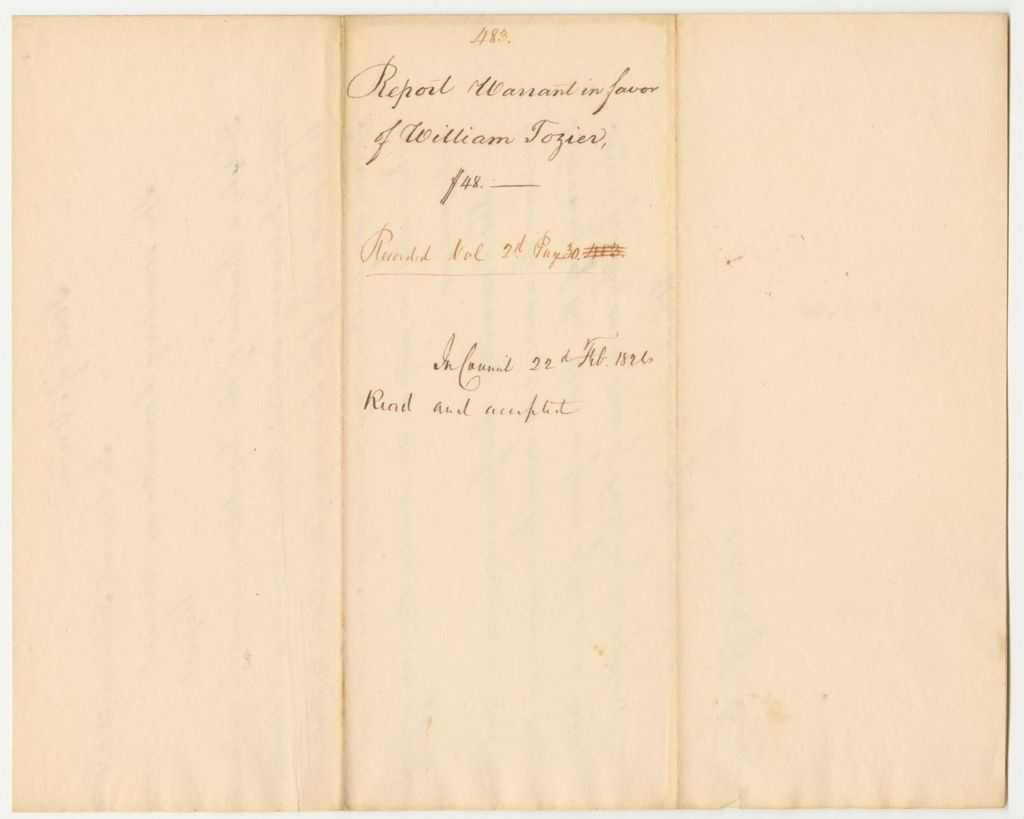 483.
Report Warrant in favor
of William Tozier,
$48. —
Recorded Vol 2d Page 30. 483.
In Council 22d Feb. 1826
Read and accepted